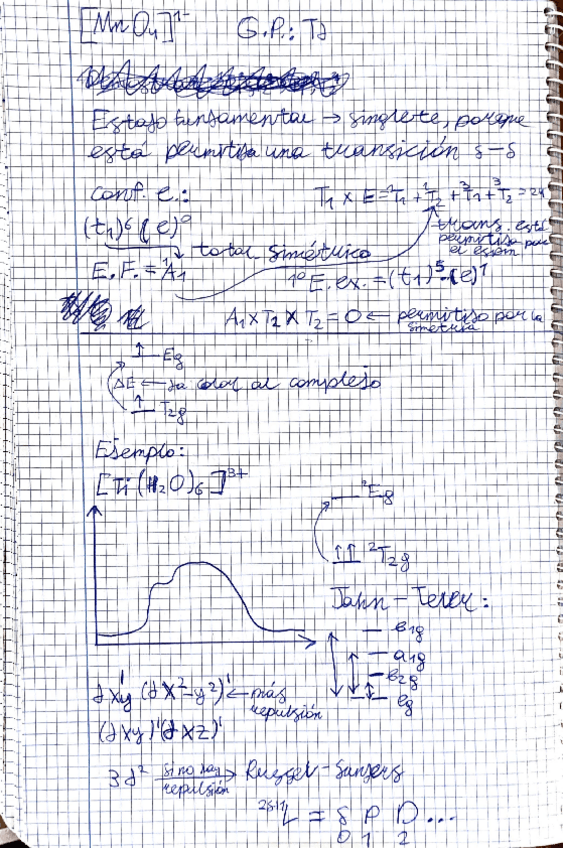 [MnO4]1- G.P.: Td
Estado fundamental → singlete, porque
está permitida una transición s-s
conf. e.:
T1 x E = ¹T1 + ¹T2 + ³T1 + ³T2 = 24
(t1)⁶ (e)⁰
trans. está
permitida por
el espín
total simétrico
E.F. = ¹A1
1º E. ex. = (t1)⁵ (e)¹
A1 x T2 x T2 = 0 ← permitido por la
simetría
Eg
ΔE ← da color al complejo
T2g
Ejemplo:
[Ti(H2O)6]3+
²Eg
²T2g
Jahn-Teller:
b1g
a1g
b2g
eg
dxy¹ (dx²-y²)¹ ← más
repulsión
(dxy)¹(dxz)¹
3d² si no hay
repulsión → Russel-Sunders
2S+1L = S P D ...
0 1 2